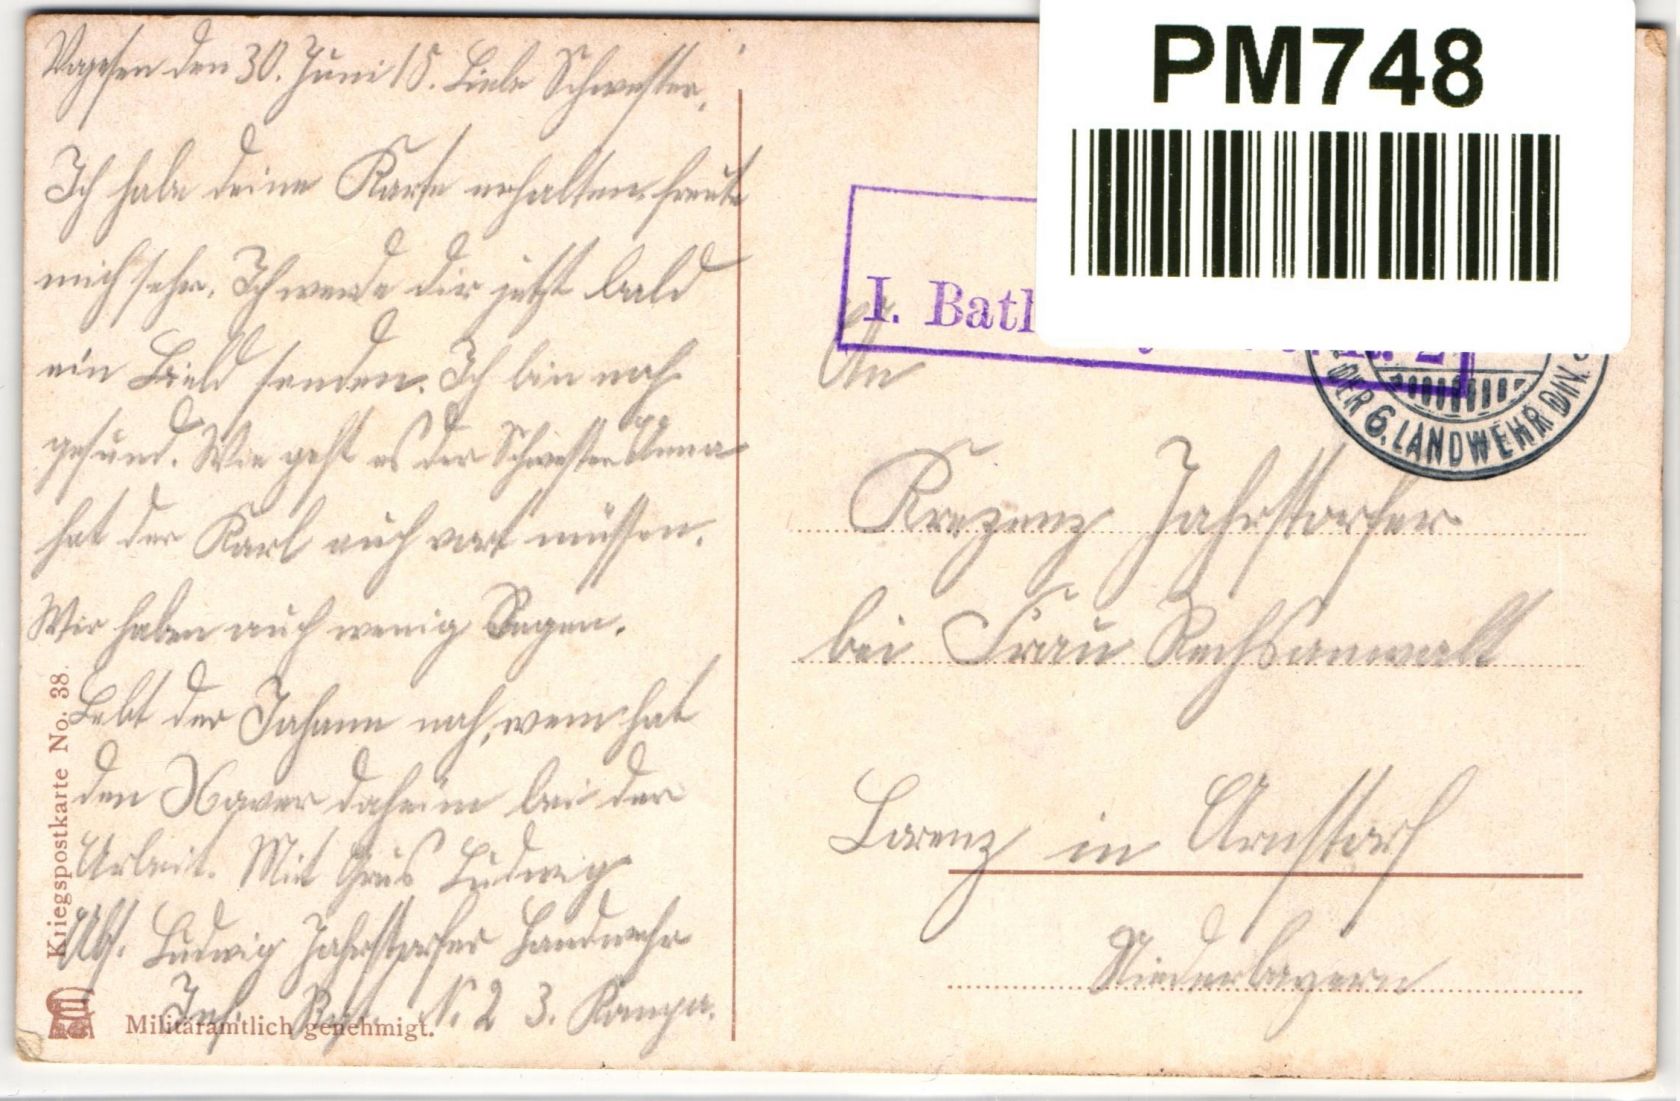 Vogesen den 30. Juni 15. Liebe Schwester,
Ich habe deine Karte erhalten freute
mich sehr. Ich werde dir jetzt bald
ein Bield senden. Ich bin noch
gesund. Wie geht es der Schwester Anna
hat der Karl auch vort müssen.
Wir haben auch wenig Regen.
Lebt der Johann noch, wem hat
den Xaver daheim bei der
Arbeit. Mit Grus Ludwig
Abs. Ludwig Jahrstorfer Landwehr
Inf. Reg. N. 2 3. Komp.
Kriegspostkarte No. 38.
Militäramtlich genehmigt.
PM748
I. Batl
DER 6. LANDWEHR DIV.
An
Krezenz Jahrstorfer
bei Frau Rechsanwalt
Lorenz in Arnstorf
Niederbayern